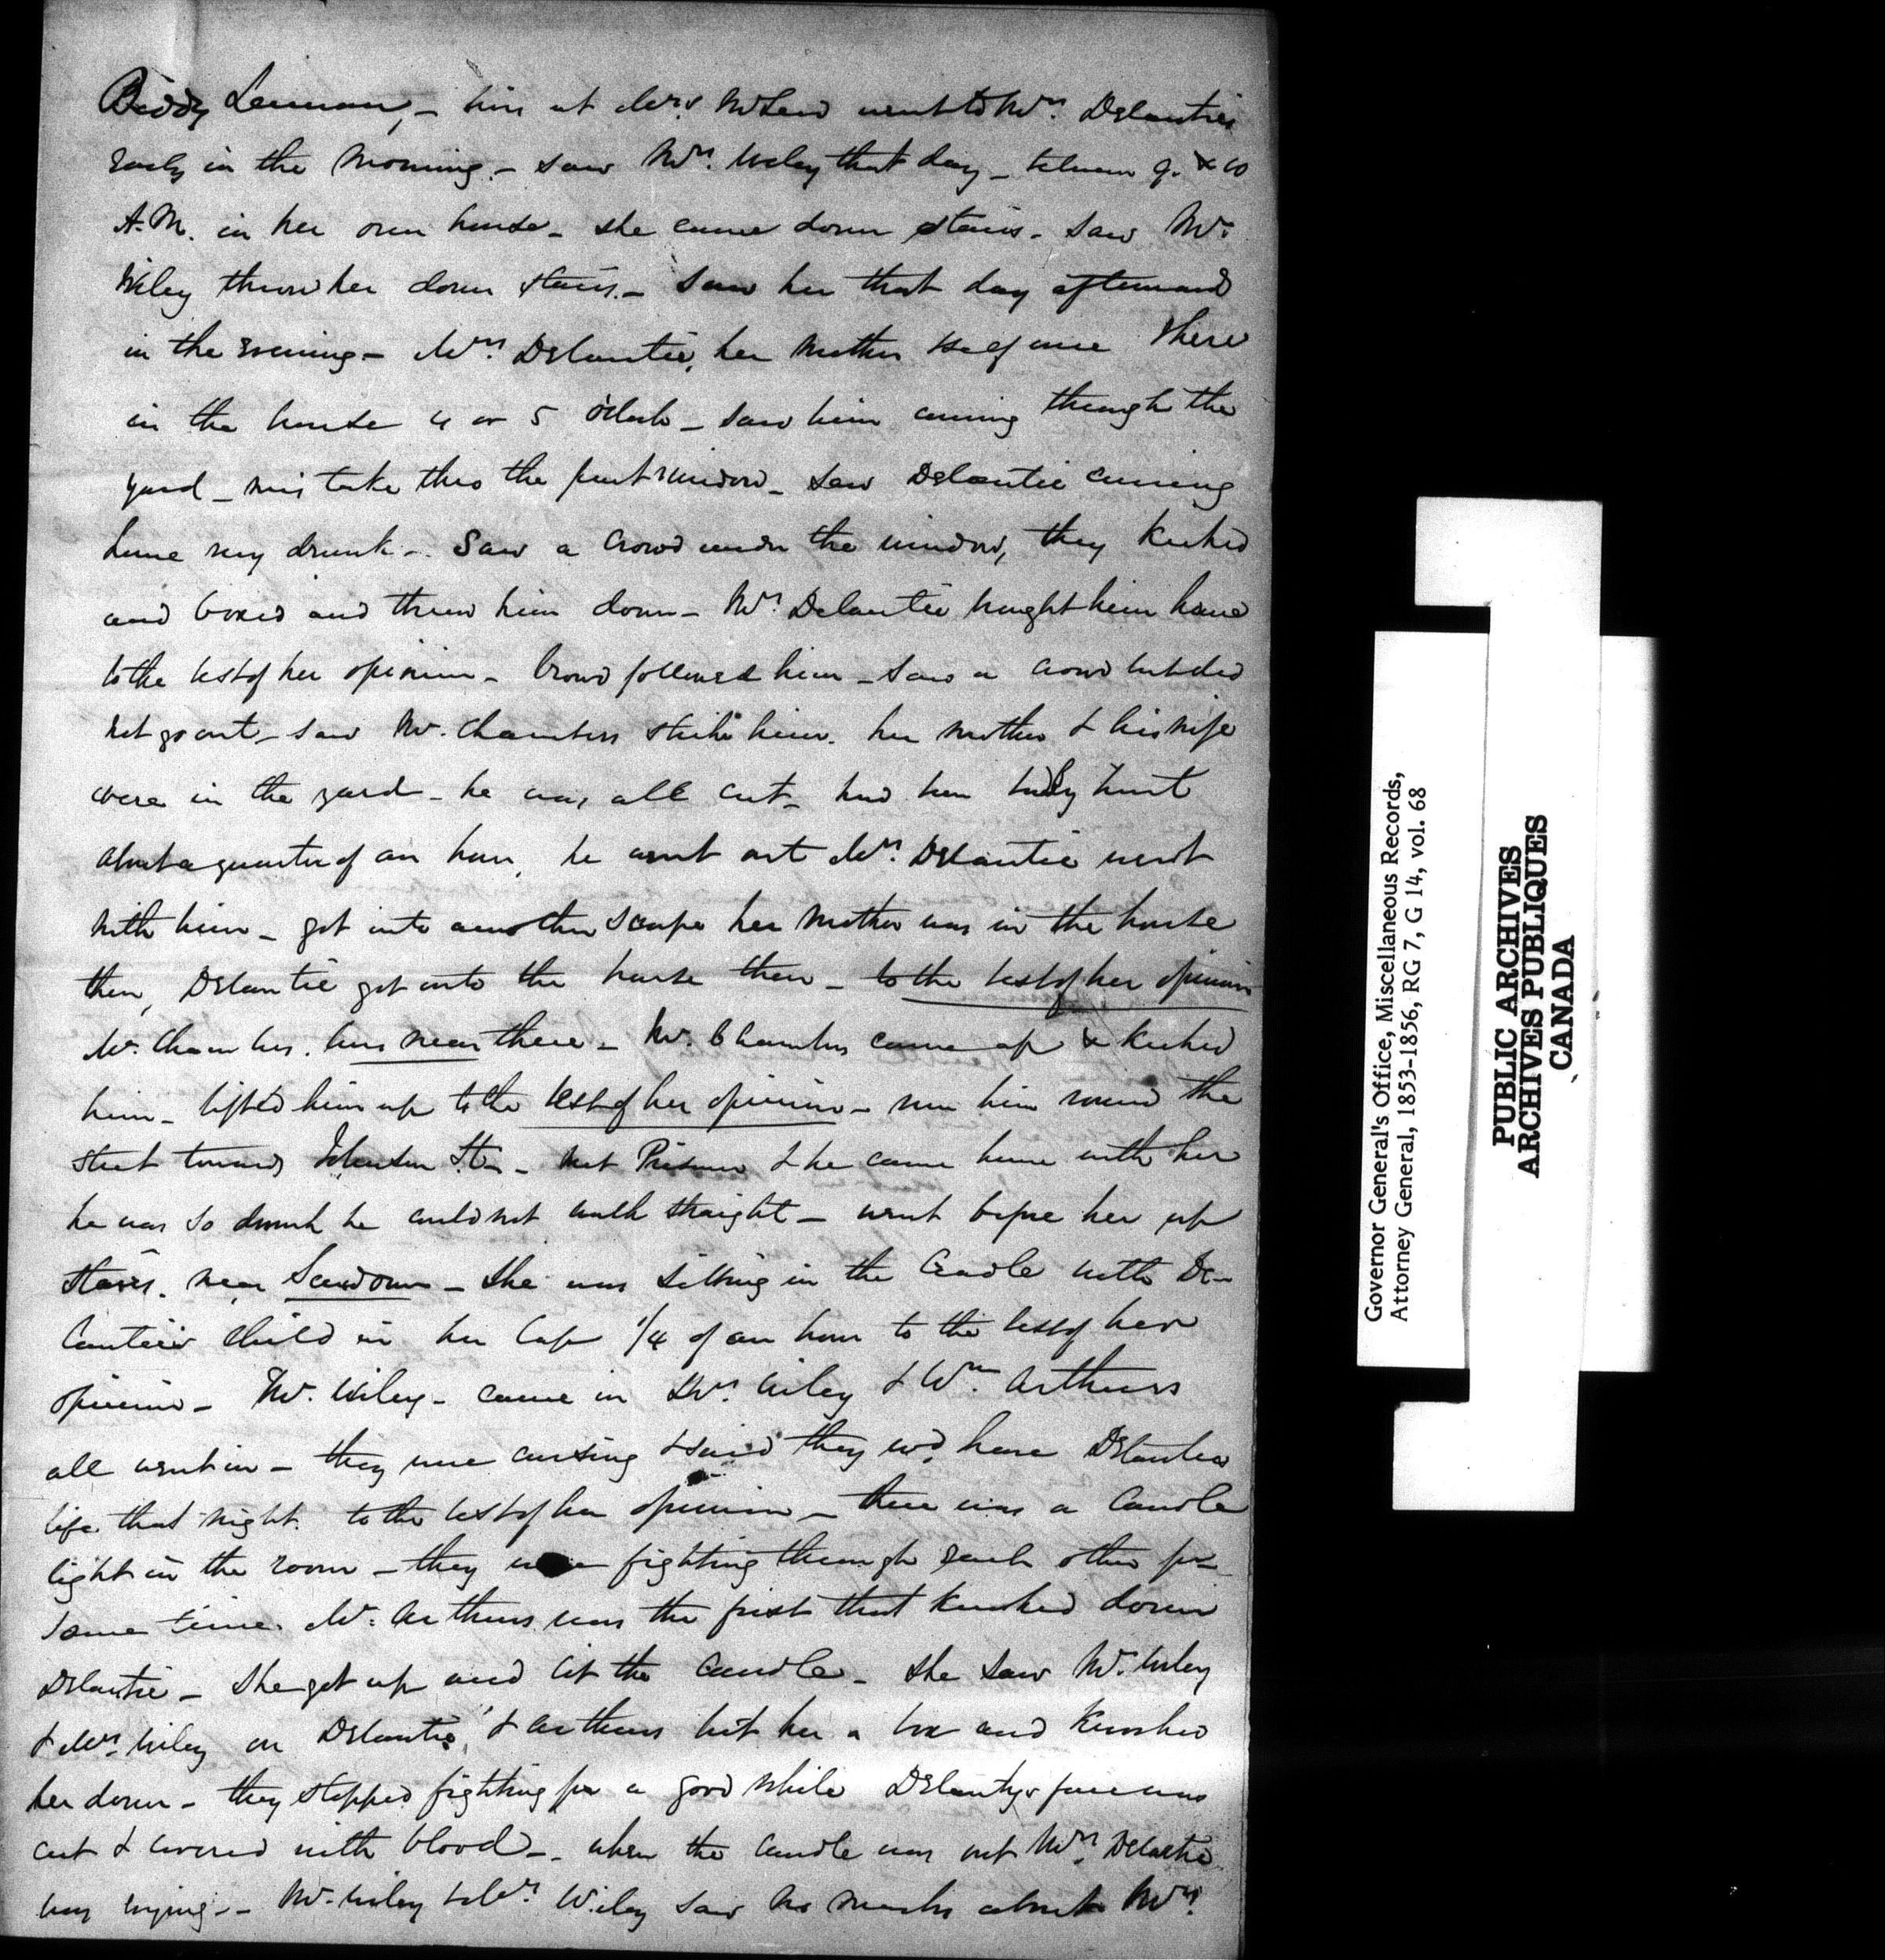 Biddy Lennan, – lives at Mrs. McLeod went to Mrs. Delantie's
Early in the morning. – saw Mrs. Wiley that day – between 9. & 10
A.M. in her own house – she came down stairs – saw Mr.
Wiley throw her down stairs. – Saw her that day afterwards
in the Evening – Mrs. Delantie, her mother & self were there
in the house 4 or 5 o'clock – saw him coming through the
yard – mistake thro the front window – saw Delantie coming
home very drunk – Saw a crowd under the window, they kicked
and boxed and threw him down – Mrs. Delantie brought him home
to the best of her opinion – Crowd followed him – saw a crowd but did
not go out – saw Mr. Chambers strike him. her mother & his wife
were in the yard – he was all cut – had been badly hurt
about a quarter of an hour, he went out Mrs. Delantie went
with him – got into another scrape her mother was in the house
then, Delantie got into the house then – to the best of her opinion
Mr. Chambers. lives near there – Mr. Chambers came up & kicked
him – lifted him up to the best of her opinion – run him round the
street towards St. – met Prisoner & he came home with her
he was so drunk he could not walk straight – went before her up
stairs. near – She was sitting in the Cradle with De-
lantie's child in her lap 1/4 of an hour to the best of her
opinion – Mr. Wiley – came in Mrs. Wiley & Wm. Arthurs
all went in – they were cursing & said they wd. have Delanties
life that night. to the best of her opinion – there was a Candle
light in the room – they were fighting through each other for
some time. Mr. Arthurs was the first that knocked down
Delantie – She got up and lit the Candle – She saw Mr. Wiley
& Mrs. Wiley on Delantie, & Arthurs hit her a box and knocked
her down – they stopped fighting for a good while Delanty's face was
cut & covered with blood – when the Candle was out Mrs. Delantie
was crying – Mr. Wiley & Mrs. Wiley saw no marks about Mrs.
Governor General's Office, Miscellaneous Records,
Attorney General, 1853-1856, RG 7, G 14, vol. 68
PUBLIC ARCHIVES
ARCHIVES PUBLIQUES
CANADA